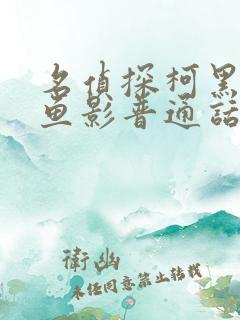 名偵探柯黑
鱼影普通話
衛幽
未经同意禁止转载